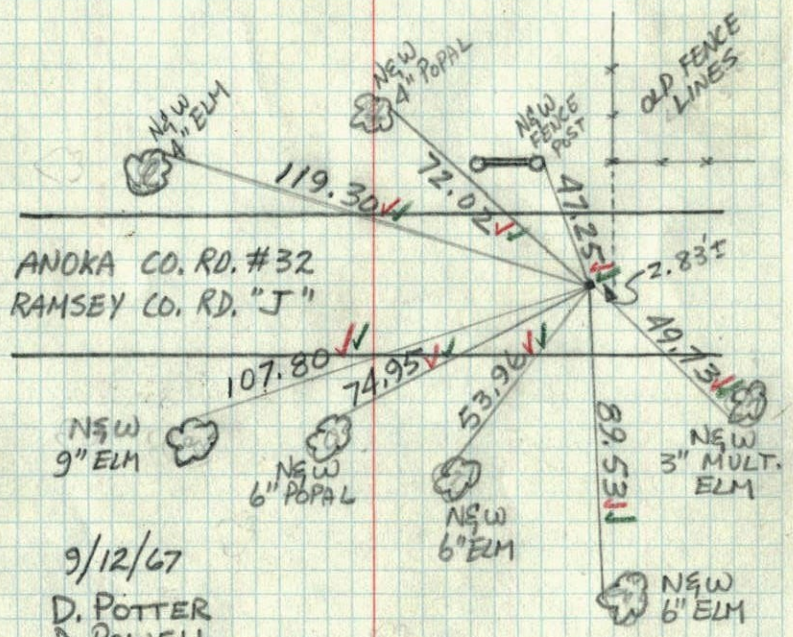 N&W
4" ELM
N&W
4" POPAL
N&W
FENCE
POST
OLD FENCE
LINES
119.30
72.02
47.25
2.83'±
ANOKA CO. RD. #32
RAMSEY CO. RD. "J"
107.80
74.95
53.96
49.73
89.53
N&W
9" ELM
N&W
6" POPAL
N&W
6" ELM
N&W
3" MULT.
ELM
N&W
6" ELM
9/12/67
D. POTTER
D. POWELL